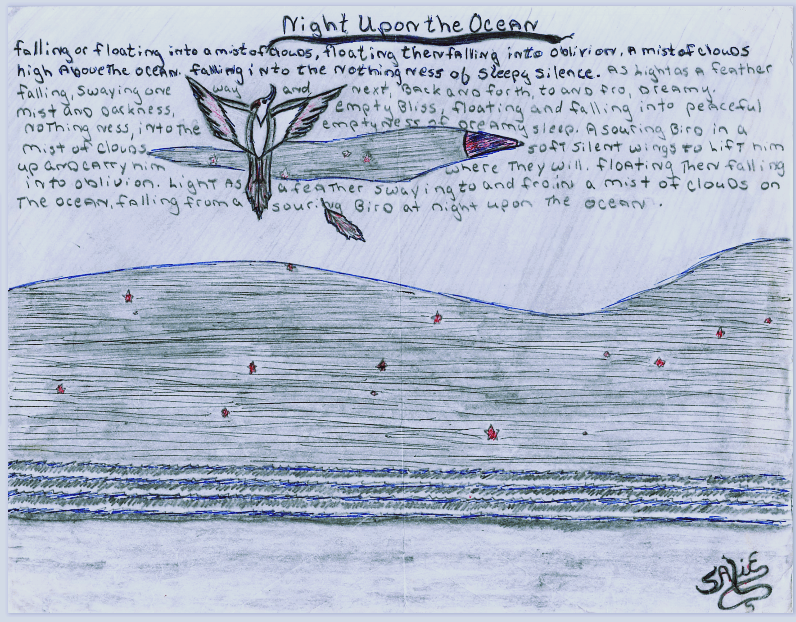 Night Upon the Ocean
falling or floating into a mist of clouds, floating then falling into oblivion. A mist of clouds
high Above The ocean. falling into the nothingness of sleepy silence. As light as a feather
falling, swaying one way and next, back and forth, to and fro, dreamy.
mist and darkness, empty bliss, floating and falling into peaceful
nothingness, into the emptyness of dreamy sleep. A souring Bird in a
mist of clouds soft silent wings to lift him
up and carry him where they will. floating then falling
into oblivion. Light As a feather swaying to and fro in a mist of clouds on
The ocean, falling from a souring Bird at night upon the ocean.
SALIE